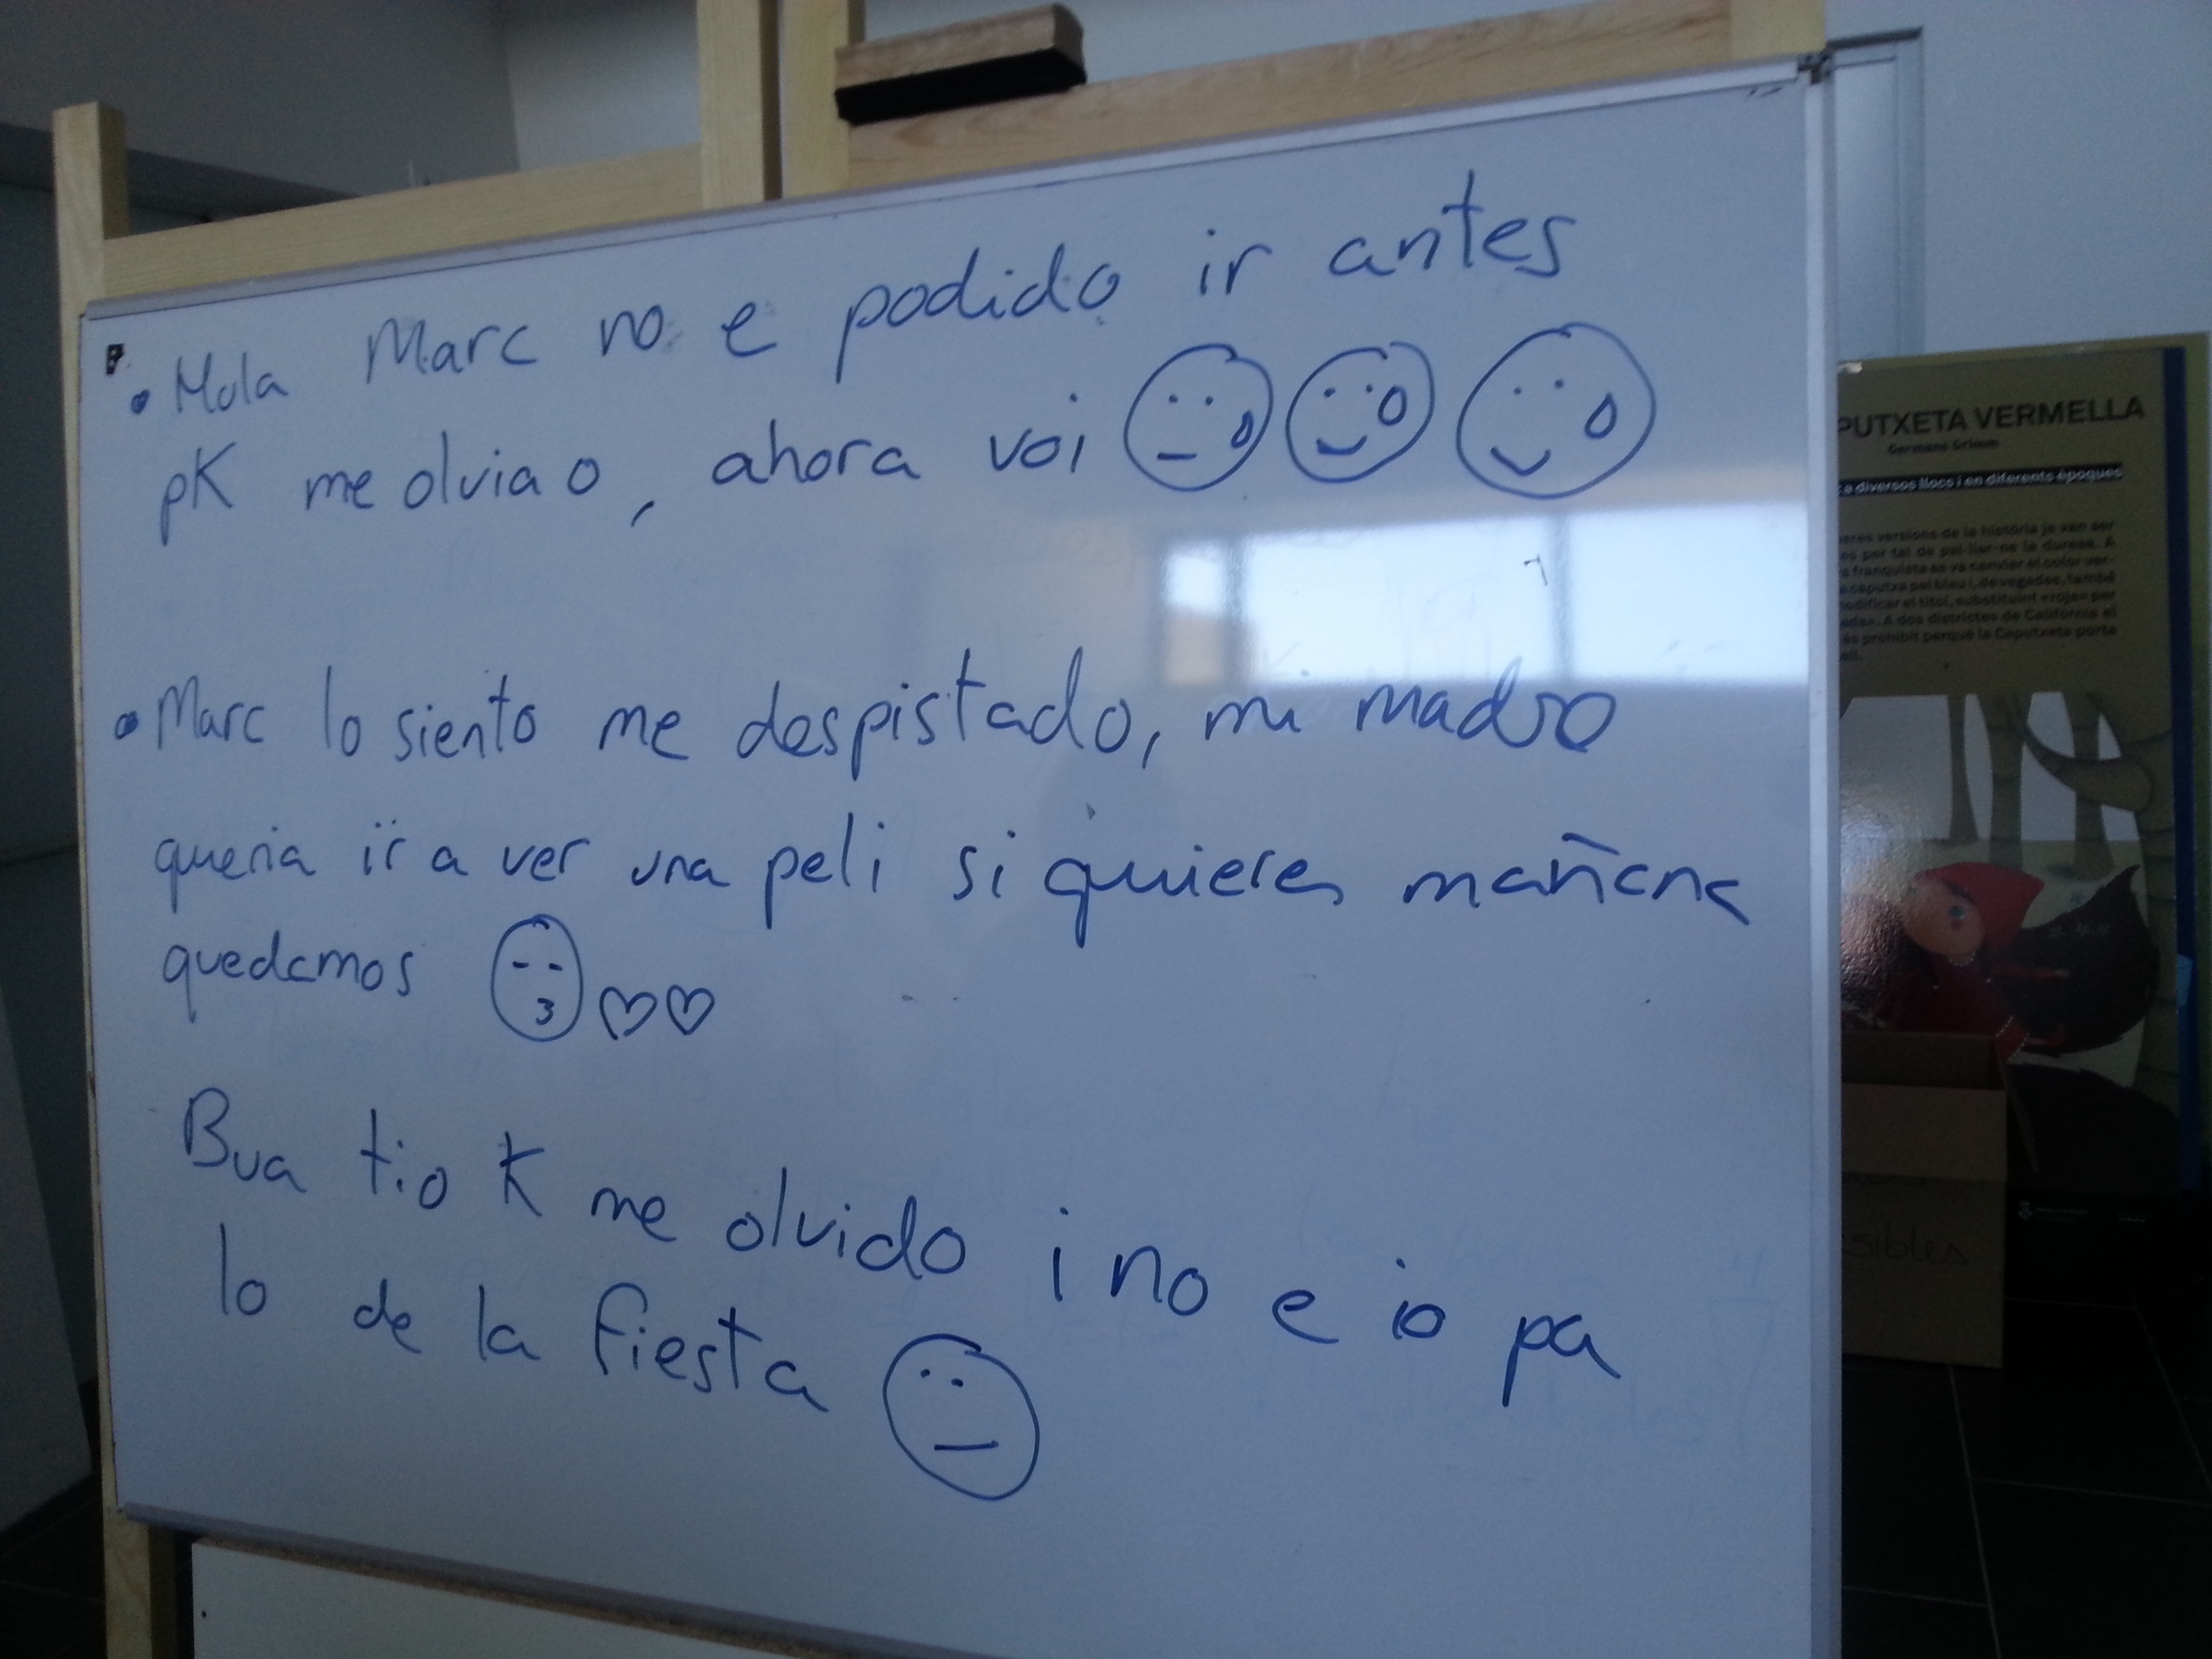 • Hola Marc no e podido ir antes
pK me olviao, ahora voi
• Marc lo siento me despistado, mi madre
queria ir a ver una peli si quieres mañana
quedamos
Bua tio K me olvido i no e io pa
lo de la fiesta
PUTXETA VERMELLA
Germans Grimm
a diversos llocs i en diferents èpoques
eres versions de la història ja van ser
es per tal de pal·liar-ne la duresa. A
franquista es va canviar el color ver-
caputxa pel blau i, de vegades, també
odificar el títol, substituint «roja» per
. A dos districtes de Califòrnia el
és prohibit perquè la Caputxeta porta
sibles